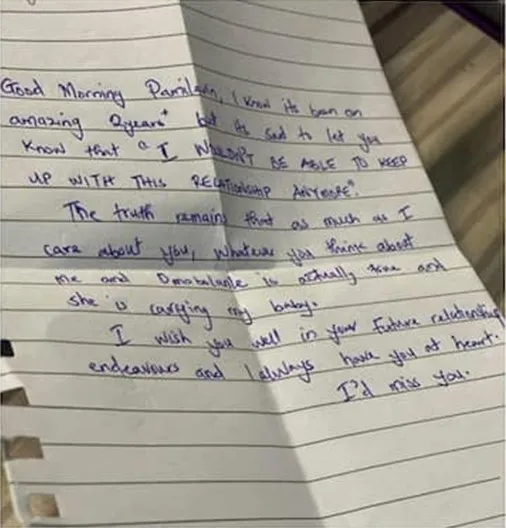 Good Morning Damilola, I know its been an
amazing 2years+ but its sad to let you
know that "I WOULDN'T BE ABLE TO KEEP
UP WITH THIS RELATIONSHIP ANYMORE".
The truth remains that as much as I
care about you, whatever you think about
me and Omobalanle is actually true and
she is carrying my baby.
I wish you well in your future relationship
endeavours and I always have you at heart.
I'd miss you.